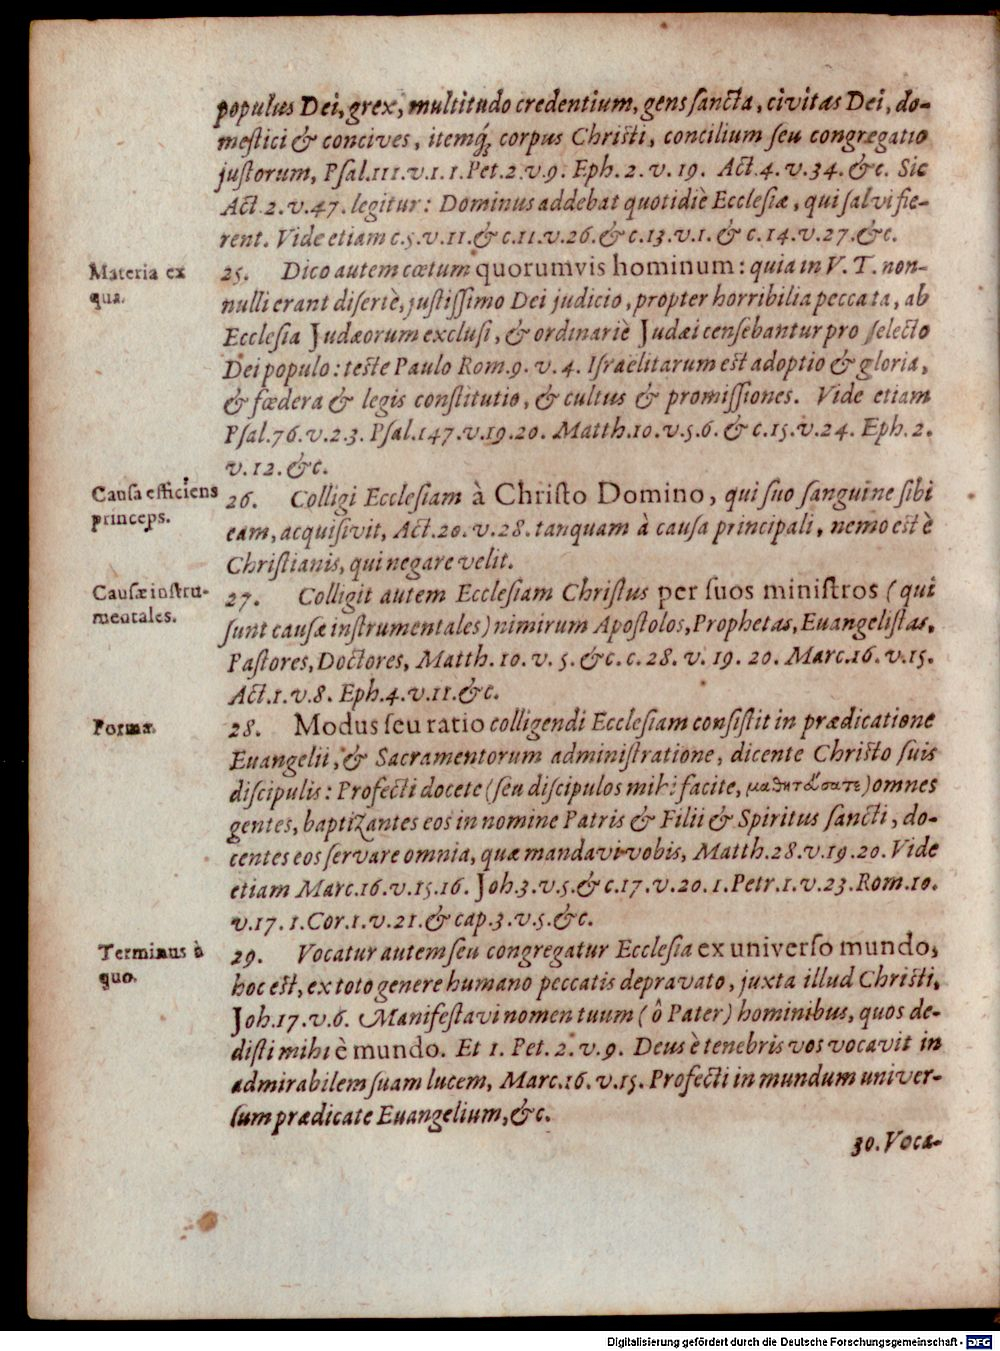 populus Dei, grex, multitudo credentium, gens sancta, civitas Dei, do-
mestici & concives, itemq́; corpus Christi, concilium seu congregatio
justorum, Psal.111.v.1.1.Pet.2.v.9. Eph.2.v.19. Act.4.v.34.&c. Sic
Act.2.v.47. legitur: Dominus addebat quotidiè Ecclesiæ, qui salvi fie-
rent. Vide etiam c.5.v.11.& c.11.v.26.& c.13.v.1.& c.14.v.27.&c.
Materia ex
qua.
25. Dico autem cœtum quorumvis hominum: quia in V. T. non-
nulli erant disertè, justissimo Dei judicio, propter horribilia peccata, ab
Ecclesia Judæorum exclusi, & ordinariè Judæi censebantur pro selecto
Dei populo: teste Paulo Rom.9.v.4. Israelitarum est adoptio & gloria,
& fœdera & legis constitutio, & cultus & promissiones. Vide etiam
Psal.76.v.2.3. Psal.147.v.19.20. Matth.10.v.5.6.& c.15.v.24. Eph.2.
v.12.&c.
Causa efficiens
princeps.
26. Colligi Ecclesiam à Christo Domino, qui suo sanguine sibi
eam, acquisivit, Act.20.v.28. tanquam à causa principali, nemo est è
Christianis, qui negare velit.
Causæ instru-
mentales.
27. Colligit autem Ecclesiam Christus per suos ministros (qui
sunt causæ instrumentales) nimirum Apostolos, Prophetas, Euangelistas,
Pastores, Doctores, Matth.10.v.5.&c. c.28.v.19.20. Marc.16.v.15.
Act.1.v.8. Eph.4.v.11.&c.
Forma.
28. Modus seu ratio colligendi Ecclesiam consistit in prædicatione
Euangelii, & Sacramentorum administratione, dicente Christo suis
discipulis: Profecti docete (seu discipulos mihi facite, μαθητεύσατε) omnes
gentes, baptizantes eos in nomine Patris & Filii & Spiritus sancti, do-
centes eos servare omnia, quæ mandavi vobis, Matth.28.v.19.20. Vide
etiam Marc.16.v.15.16. Joh.3.v.5.& c.17.v.20.1.Petr.1.v.23.Rom.10.
v.17.1.Cor.1.v.21.& cap.3.v.5.&c.
Terminus à
quo.
29. Vocatur autem seu congregatur Ecclesia ex universo mundo,
hoc est, ex toto genere humano peccatis depravato, juxta illud Christi,
Joh.17.v.6. Manifestavi nomen tuum (ô Pater) hominibus, quos de-
disti mihi è mundo. Et 1. Pet.2.v.9. Deus è tenebris vos vocavit in
admirabilem suam lucem, Marc.16.v.15. Profecti in mundum univer-
sum prædicate Euangelium, &c.
30. Voca-
Digitalisierung gefördert durch die Deutsche Forschungsgemeinschaft - DFG